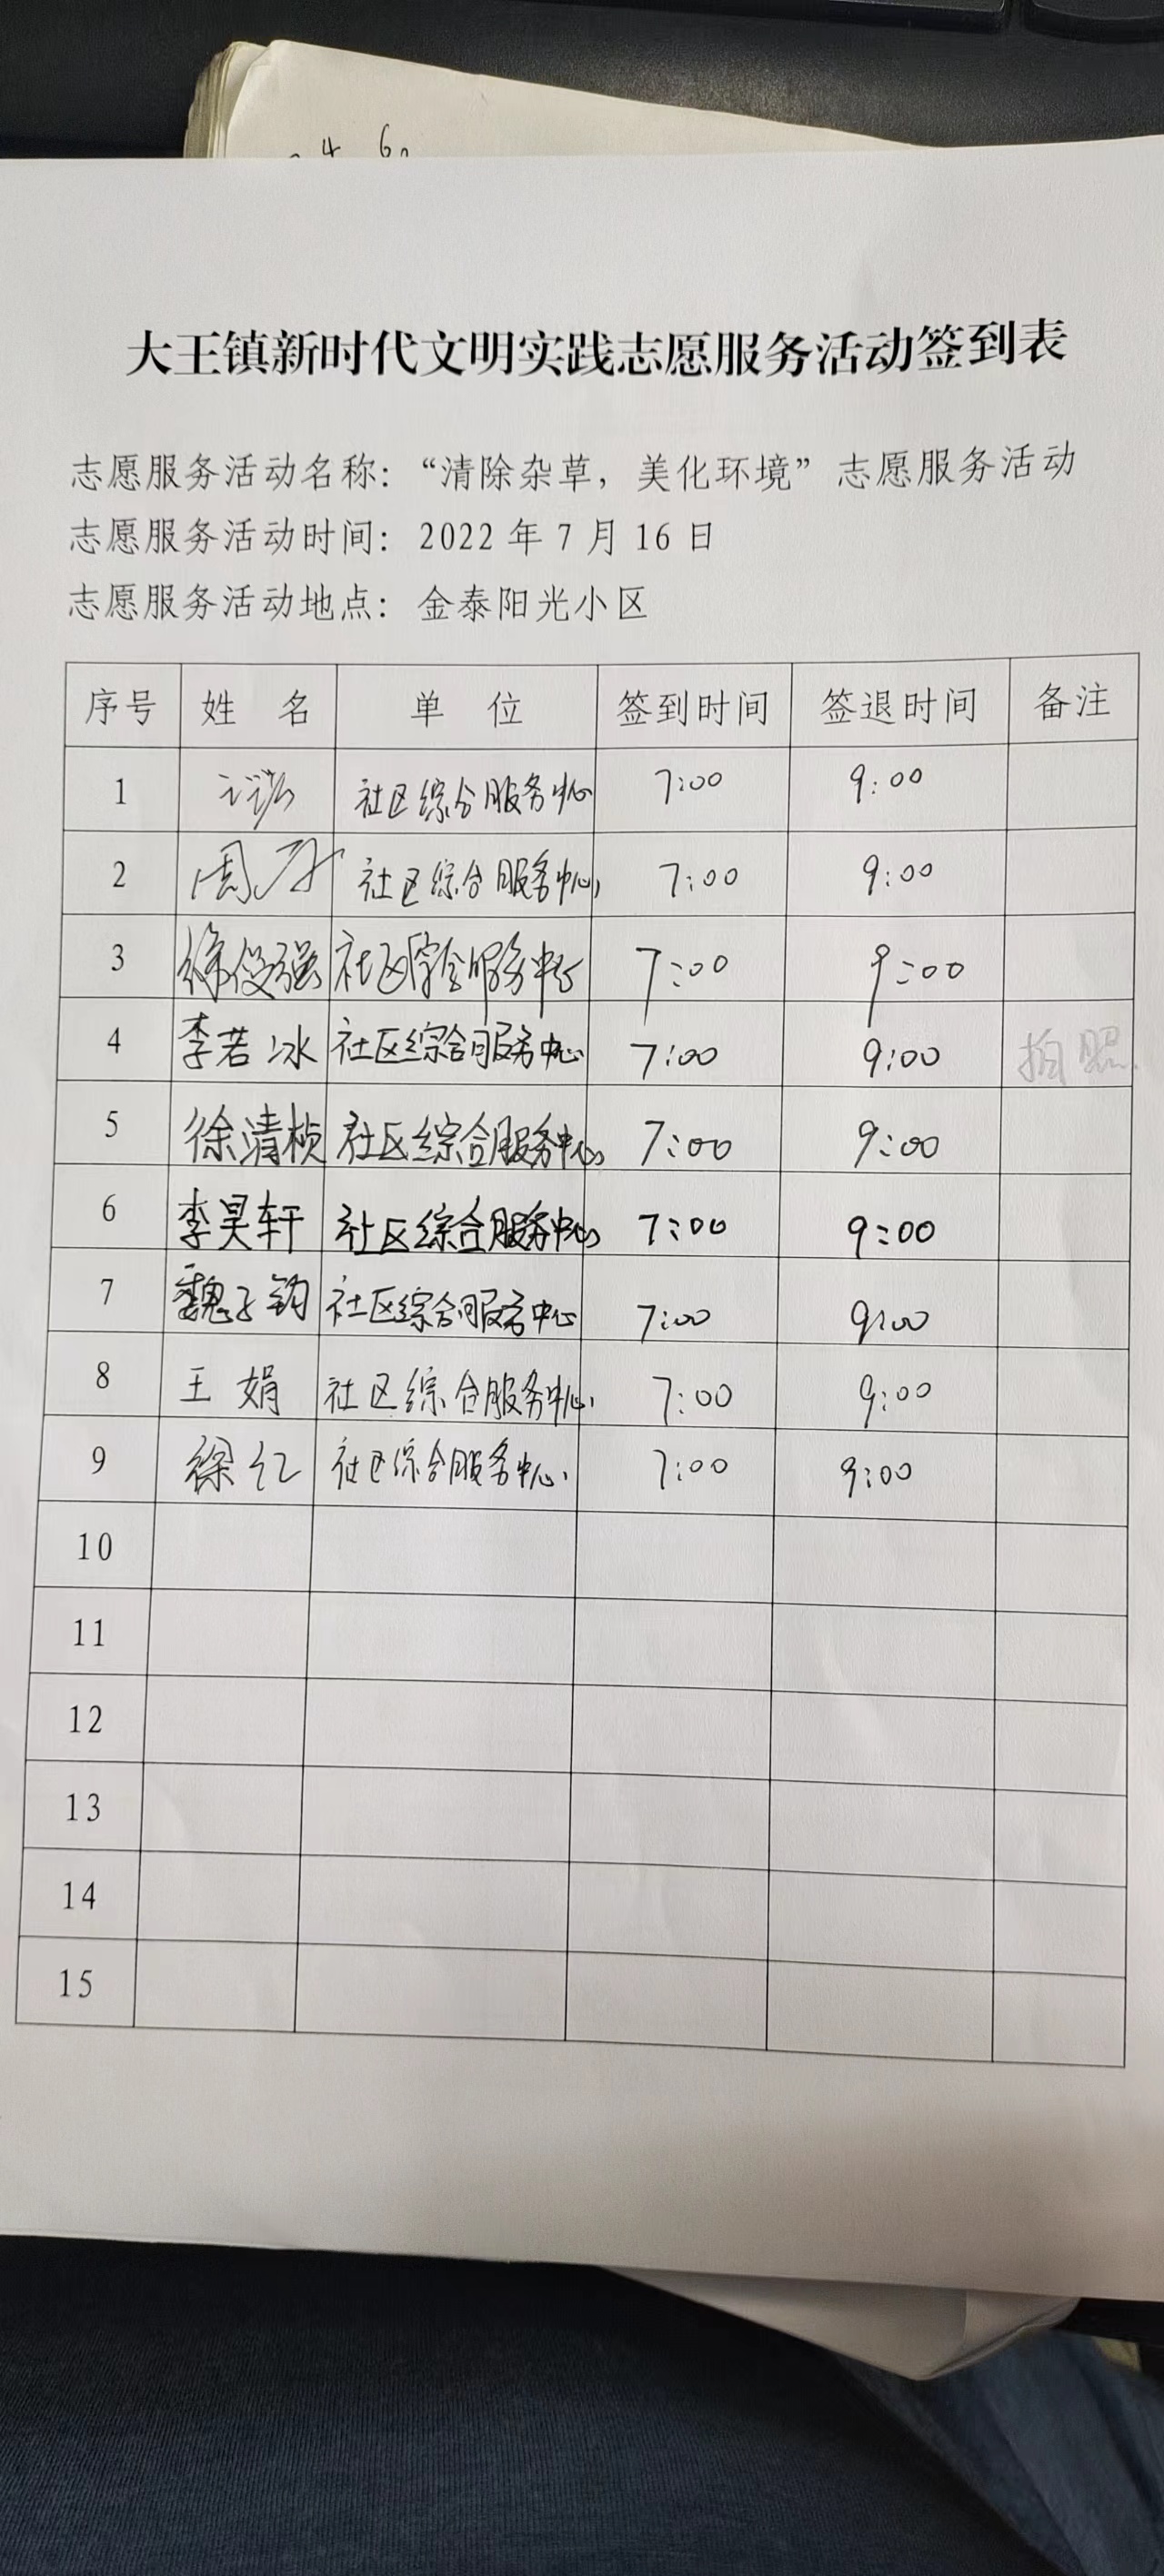 4 6
大王镇新时代文明实践志愿服务活动签到表
志愿服务活动名称：“清除杂草，美化环境”志愿服务活动
志愿服务活动时间：2022年7月16日
志愿服务活动地点：金泰阳光小区
序号 姓名 单位 签到时间 签退时间 备注
1 社区综合服务中心 7:00 9:00
2 周 社区综合服务中心 7:00 9:00
3 徐俊强 社区综合服务中心 7:00 9:00
4 李若冰 社区综合服务中心 7:00 9:00 拍照
5 徐清桢 社区综合服务中心 7:00 9:00
6 李昊轩 社区综合服务中心 7:00 9:00
7 魏子钧 社区综合服务中心 7:00 9:00
8 王娟 社区综合服务中心 7:00 9:00
9 徐红 社区综合服务中心 7:00 9:00
10
11
12
13
14
15